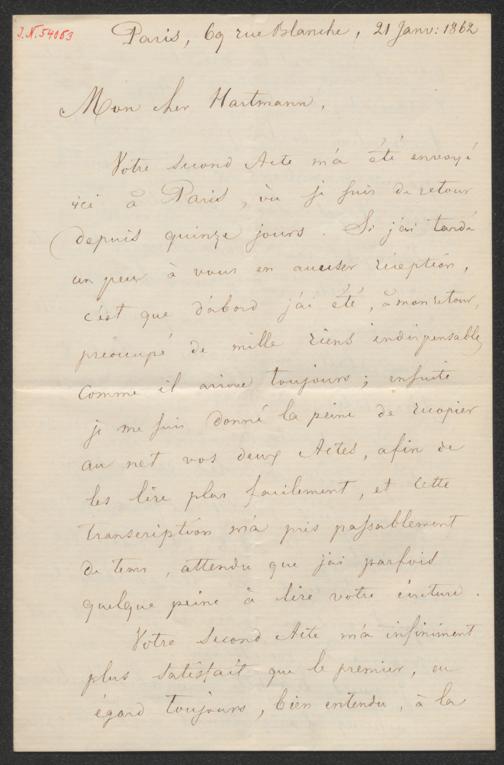 I.N. 54063
Paris, 69 rue Blanche, 21 Janv: 1862
Mon cher Hartmann,
Votre second Acte m'a été envoyé
ici à Paris, où je suis de retour
depuis quinze jours. Si j'ai tardé
un peu à vous en accuser réception,
c'est que d'abord j'ai été, à mon retour,
préoccupé de mille riens indispensables
comme il arrive toujours; ensuite
je me suis donné la peine de recopier
au net vos deux Actes, afin de
les lire plus facilement, et cette
transcription m'a pris passablement
de tems, attendu que j'ai parfois
quelque peine à lire votre écriture.
Votre second Acte m'a infiniment
plus satisfait que le premier, eu
égard toujours, bien entendu, à la